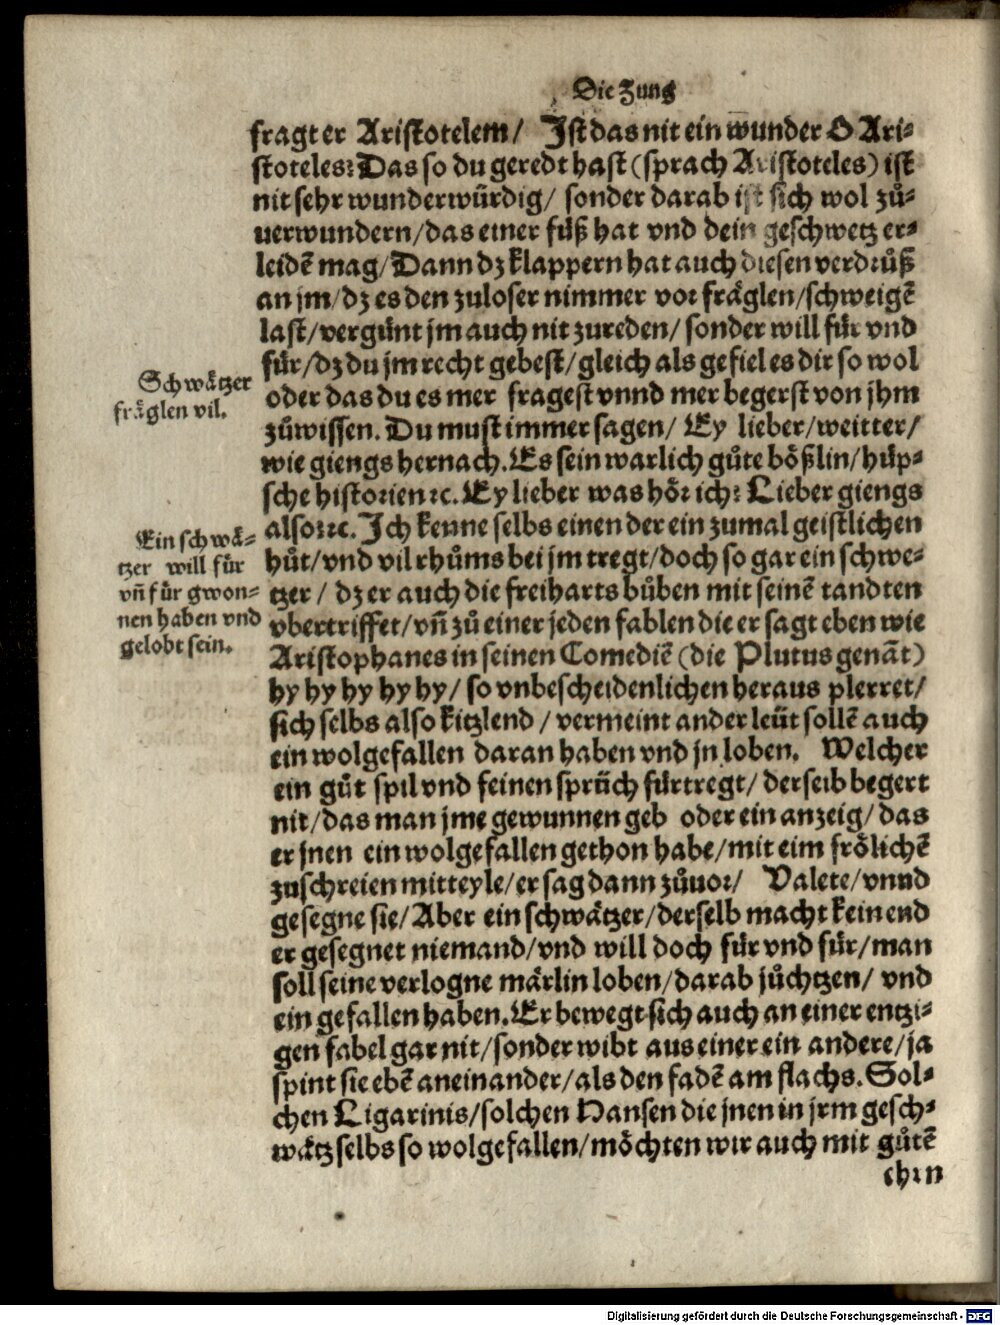 Die Zung
fragt er Aristotelem/ Jst das nit ein wunder O Ari-
stoteles? Das so du geredt hast (sprach Aristoteles) ist
nit sehr wunderwürdig/ sonder darab ist sich wol zů-
uerwundern/ das einer fůß hat vnd dein geschwetz er-
leidē mag/ Dann dz klappern hat auch diesen verdrůß
an jm/ dz es den zuloser nimmer vor fräglen/ schweigē
last/ vergünt jm auch nit zureden/ sonder will für vnd
für/ dz du jm recht gebest/ gleich als gefiel es dir so wol
Schwätzer
fräglen vil.
oder das du es mer fragest vnnd mer begerst von jhm
zůwissen. Du must immer sagen/ Ey lieber/ weitter/
wie giengs hernach. Es sein warlich gůte bößlin/ hüp-
sche historien ꝛc. Ey lieber was hör ich? Lieber giengs
also? ꝛc. Jch kenne selbs einen der ein zumal geistlichen
Ein schwä-
tzer will für
vn̄ für gwon-
nen haben vnd
gelobt sein.
hůt/ vnd vil rhůms bei jm tregt/ doch so gar ein schwe-
tzer/ dz er auch die freiharts bůben mit seinē tandten
vbertriffet/ vn̄ zů einer jeden fablen die er sagt eben wie
Aristophanes in seinen Comediē (die Plutus genāt)
hy hy hy hy hy/ so vnbescheidenlichen heraus plerret/
sich selbs also kitzlend/ vermeint ander leüt sollē auch
ein wolgefallen daran haben vnd jn loben. Welcher
ein gůt spil vnd feinen sprüch fürtregt/ derselb begert
nit/ das man jme gewunnen geb oder ein anzeig/ das
er jnen ein wolgefallen gethon habe/ mit eim frölichē
zuschreien mitteyle/ er sag dann zůuor/ Valete/ vnnd
gesegne sie/ Aber ein schwätzer/ derselb macht kein end
er gesegnet niemand/ vnd will doch für vnd für/ man
soll seine verlogne märlin loben/ darab jůchtzen/ vnd
ein gefallen haben. Er bewegt sich auch an einer entzi-
gen fabel gar nit/ sonder wibt aus einer ein andere/ ja
spint sie ebē aneinander/ als den fadē am flachs. Sol-
chen Ligarinis/ solchen Hansen die jnen in jrm gesch-
wätz selbs so wolgefallen/ möchten wir auch mit gůtē
ehrn
Digitalisierung gefördert durch die Deutsche Forschungsgemeinschaft - DFG